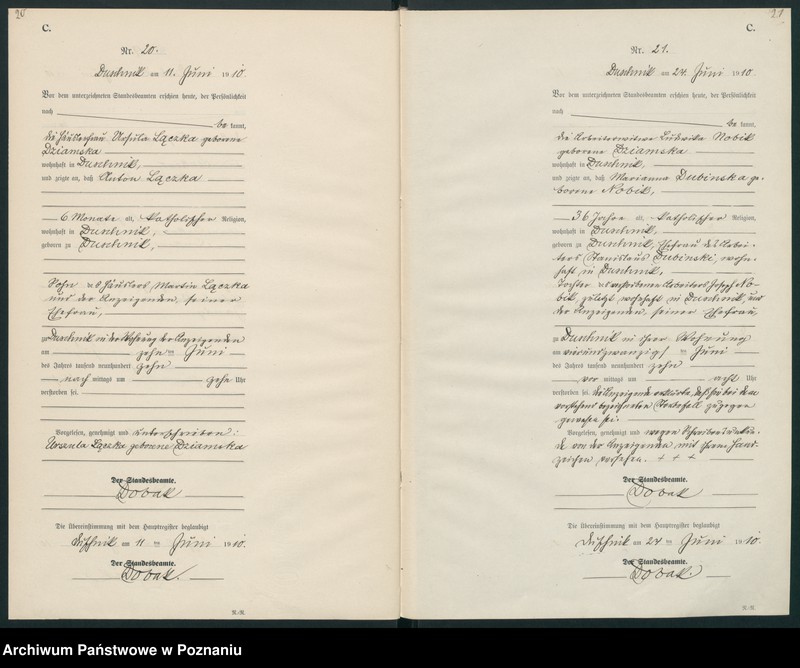 20
C.
Nr. 20.
Duschnik am 11. Juni 1910.
Vor dem unterzeichneten Standesbeamten erschien heute, der Persönlichkeit
nach
be kannt,
die Häuslerfrau Ursula Łączka geborene
Dziamska
wohnhaft in Duschnik,
und zeigte an, daß Anton Łączka
6 Monate alt, katholischer Religion,
wohnhaft in Duschnik
geboren zu Duschnik,
Sohn des Häuslers Martin Łączka
und der Anzeigenden, seiner
Ehefrau,
zu Duschnik in der Wohnung der Anzeigenden
am zehn ten Juni
des Jahres tausend neunhundert zehn
nach mittags um zehn Uhr
verstorben sei.
Vorgelesen, genehmigt und unterschrieben:
Urszula Łączka geborene Dziamska
Der Standesbeamte.
Dobak
Die Übereinstimmung mit dem Hauptregister beglaubigt
Duschnik am 11 ten Juni 1910.
Der Standesbeamte.
Dobak.
R.-R.
21
C.
Nr. 21.
Duschnik am 24. Juni 1910.
Vor dem unterzeichneten Standesbeamten erschien heute, der Persönlichkeit
nach
be kannt,
die Arbeiterwitwe Ludwika Nobik
geborene Dziamska
wohnhaft in Duschnik,
und zeigte an, daß Marianna Dubinska ge-
borene Nobik,
36 Jahre alt, katholischer Religion,
wohnhaft in Duschnik,
geboren zu Duschnik, Ehefrau des Arbei-
ters Stanislaus Dubinski, wohn-
haft in Duschnik,
Tochter des verstorbenen Arbeiters Joseph No-
bik, zuletzt wohnhaft in Duschnik, und
der Anzeigenden, seiner Ehefrau,
zu Duschnik in ihrer Wohnung
am vierundzwanzigsten Juni
des Jahres tausend neunhundert zehn
vor mittags um acht Uhr
verstorben sei. Die Anzeigende erklärte, daß sie bei dem
vorstehend bezeichneten Sterbefall zugegen
gewesen sei.
Vorgelesen, genehmigt und wegen Schreibensunkun-
de von der Anzeigenden mit ihrem Hand-
zeichen versehen. + + +
Der Standesbeamte.
Dobak
Die Übereinstimmung mit dem Hauptregister beglaubigt
Duschnik am 24 ten Juni 1910.
Der Standesbeamte.
Dobak.
R.-R.
Archiwum Państwowe w Poznaniu